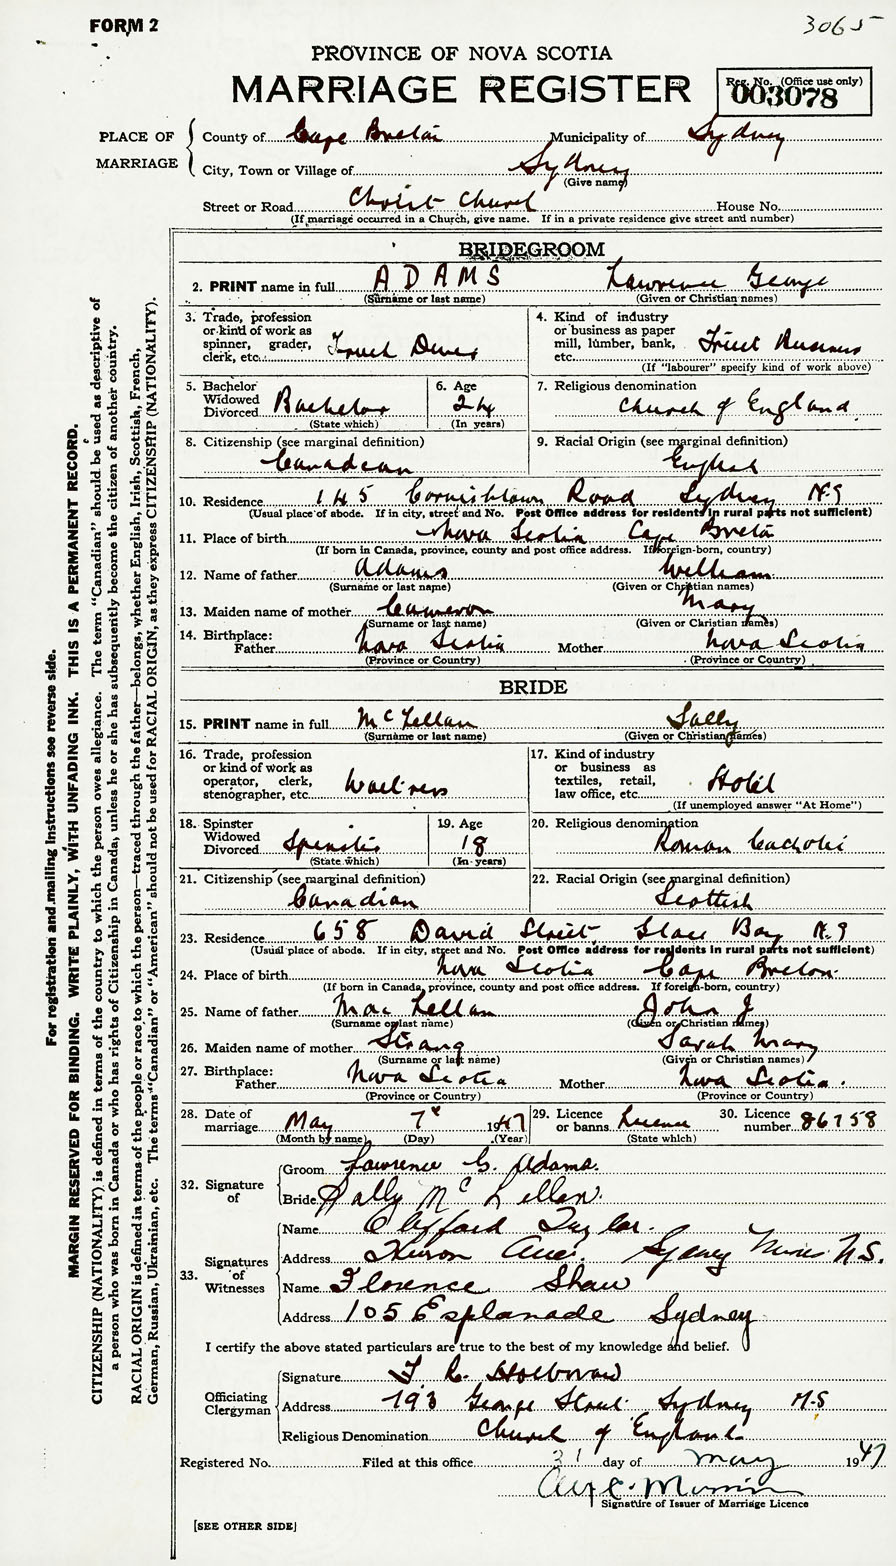 FORM 2
3065
PROVINCE OF NOVA SCOTIA
MARRIAGE REGISTER
Reg. No. (Office use only)
003078
PLACE OF MARRIAGE
County of Cape Breton Municipality of Sydney
City, Town or Village of Sydney
(Give name)
Street or Road Christ Church House No.
(If marriage occurred in a Church, give name. If in a private residence give street and number)
BRIDEGROOM
2. PRINT name in full ADAMS Lawrence George
(Surname or last name) (Given or Christian names)
3. Trade, profession or kind of work as spinner, grader, clerk, etc. Truck Driver
4. Kind of industry or business as paper mill, lumber, bank, etc. Fruit Business
(If "labourer" specify kind of work above)
5. Bachelor Widowed Divorced Bachelor
(State which)
6. Age 24
(In years)
7. Religious denomination Church of England
8. Citizenship (see marginal definition) Canadian
9. Racial Origin (see marginal definition) English
10. Residence 145 Cornishtown Road Sydney N.S
(Usual place of abode. If in city, street and No. Post Office address for residents in rural parts not sufficient)
11. Place of birth Nova Scotia Cape Breton
(If born in Canada, province, county and post office address. If foreign-born, country)
12. Name of father Adams William
(Surname or last name) (Given or Christian names)
13. Maiden name of mother Cameron Mary
(Surname or last name) (Given or Christian names)
14. Birthplace: Father Nova Scotia Mother Nova Scotia
(Province or Country) (Province or Country)
BRIDE
15. PRINT name in full McLellan Sally
(Surname or last name) (Given or Christian names)
16. Trade, profession or kind of work as operator, clerk, stenographer, etc. Waitress
17. Kind of industry or business as textiles, retail, law office, etc. Hotel
(If unemployed answer "At Home")
18. Spinster Widowed Divorced Spinster
(State which)
19. Age 18
(In years)
20. Religious denomination Roman Catholic
21. Citizenship (see marginal definition) Canadian
22. Racial Origin (see marginal definition) Scottish
23. Residence 658 David Street Glace Bay N.S
(Usual place of abode. If in city, street and No. Post Office address for residents in rural parts not sufficient)
24. Place of birth Nova Scotia Cape Breton
(If born in Canada, province, county and post office address. If foreign-born, country)
25. Name of father Mac Lellan John J
(Surname or last name) (Given or Christian names)
26. Maiden name of mother Strang Sarah Mary
(Surname or last name) (Given or Christian names)
27. Birthplace: Father Nova Scotia Mother Nova Scotia.
(Province or Country) (Province or Country)
28. Date of marriage May 7th 1947
(Month by name) (Day) (Year)
29. Licence or banns Licence
(State which)
30. Licence number 86758
32. Signature of
Groom Lawrence G. Adams.
Bride Sally McLellan.
33. Signatures of Witnesses
Name Clyfford Taylor.
Address Huron Ave. Sydney Mines N.S.
Name Florence Shaw
Address 105 Esplanade Sydney
I certify the above stated particulars are true to the best of my knowledge and belief.
Officiating Clergyman
Signature
Address 793 George Street Sydney N.S
Religious Denomination Church of England
Registered No. Filed at this office 31 day of May 1947
Signature of Issuer of Marriage Licence
[SEE OTHER SIDE]
For registration and mailing instructions see reverse side.
MARGIN RESERVED FOR BINDING. WRITE PLAINLY, WITH UNFADING INK. THIS IS A PERMANENT RECORD.
CITIZENSHIP (NATIONALITY) is defined in terms of the country to which the person owes allegiance. The term "Canadian" should be used as descriptive of
a person who was born in Canada or who has rights of Citizenship in Canada, unless he or she has subsequently become the citizen of another country.
RACIAL ORIGIN is defined in terms of the people or race to which the person—traced through the father—belongs, whether English, Irish, Scottish, French,
German, Russian, Ukrainian, etc. The terms "Canadian" or "American" should not be used for RACIAL ORIGIN, as they express CITIZENSHIP (NATIONALITY).